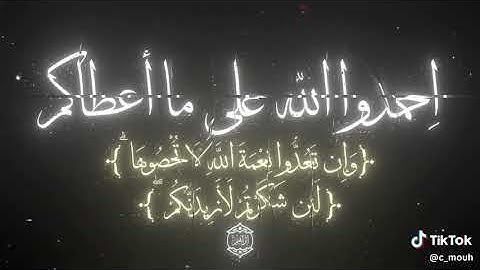 اِحمدوا الله على ما أعطاكم
﴿وَإِن تَعُدُّوا نِعْمَةَ اللَّهِ لَا تُحْصُوهَا ۗ﴾
﴿لَئِن شَكَرْتُمْ لَأَزِيدَنَّكُمْ ۖ﴾
TikTok
@c_mouh